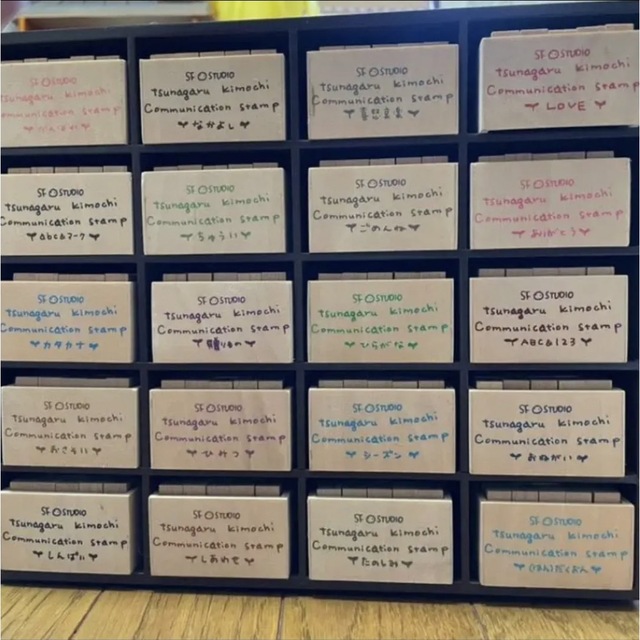 SF STUDIO
Tsunagaru kimochi
Communication stamp
SF STUDIO
Tsunagaru kimochi
Communication stamp
なかよし
SF STUDIO
Tsunagaru kimochi
Communication stamp
SF STUDIO
Tsunagaru kimochi
Communication stamp
LOVE
SF STUDIO
Tsunagaru kimochi
Communication stamp
abc&マーク
SF STUDIO
Tsunagaru kimochi
Communication stamp
ちゅうい
SF STUDIO
Tsunagaru kimochi
Communication stamp
ごめんね
SF STUDIO
Tsunagaru kimochi
Communication stamp
ありがとう
SF STUDIO
Tsunagaru kimochi
Communication stamp
カタカナ
SF STUDIO
Tsunagaru kimochi
Communication stamp
SF STUDIO
Tsunagaru kimochi
Communication stamp
ひらがな
SF STUDIO
Tsunagaru kimochi
Communication stamp
ABC&123
SF STUDIO
Tsunagaru kimochi
Communication stamp
おさそい
SF STUDIO
Tsunagaru kimochi
Communication stamp
ひみつ
SF STUDIO
Tsunagaru kimochi
Communication stamp
シーズン
SF STUDIO
Tsunagaru kimochi
Communication stamp
おねがい
SF STUDIO
Tsunagaru kimochi
Communication stamp
しんぱい
SF STUDIO
Tsunagaru kimochi
Communication stamp
しあわせ
SF STUDIO
Tsunagaru kimochi
Communication stamp
たのしみ
SF STUDIO
Tsunagaru kimochi
Communication stamp